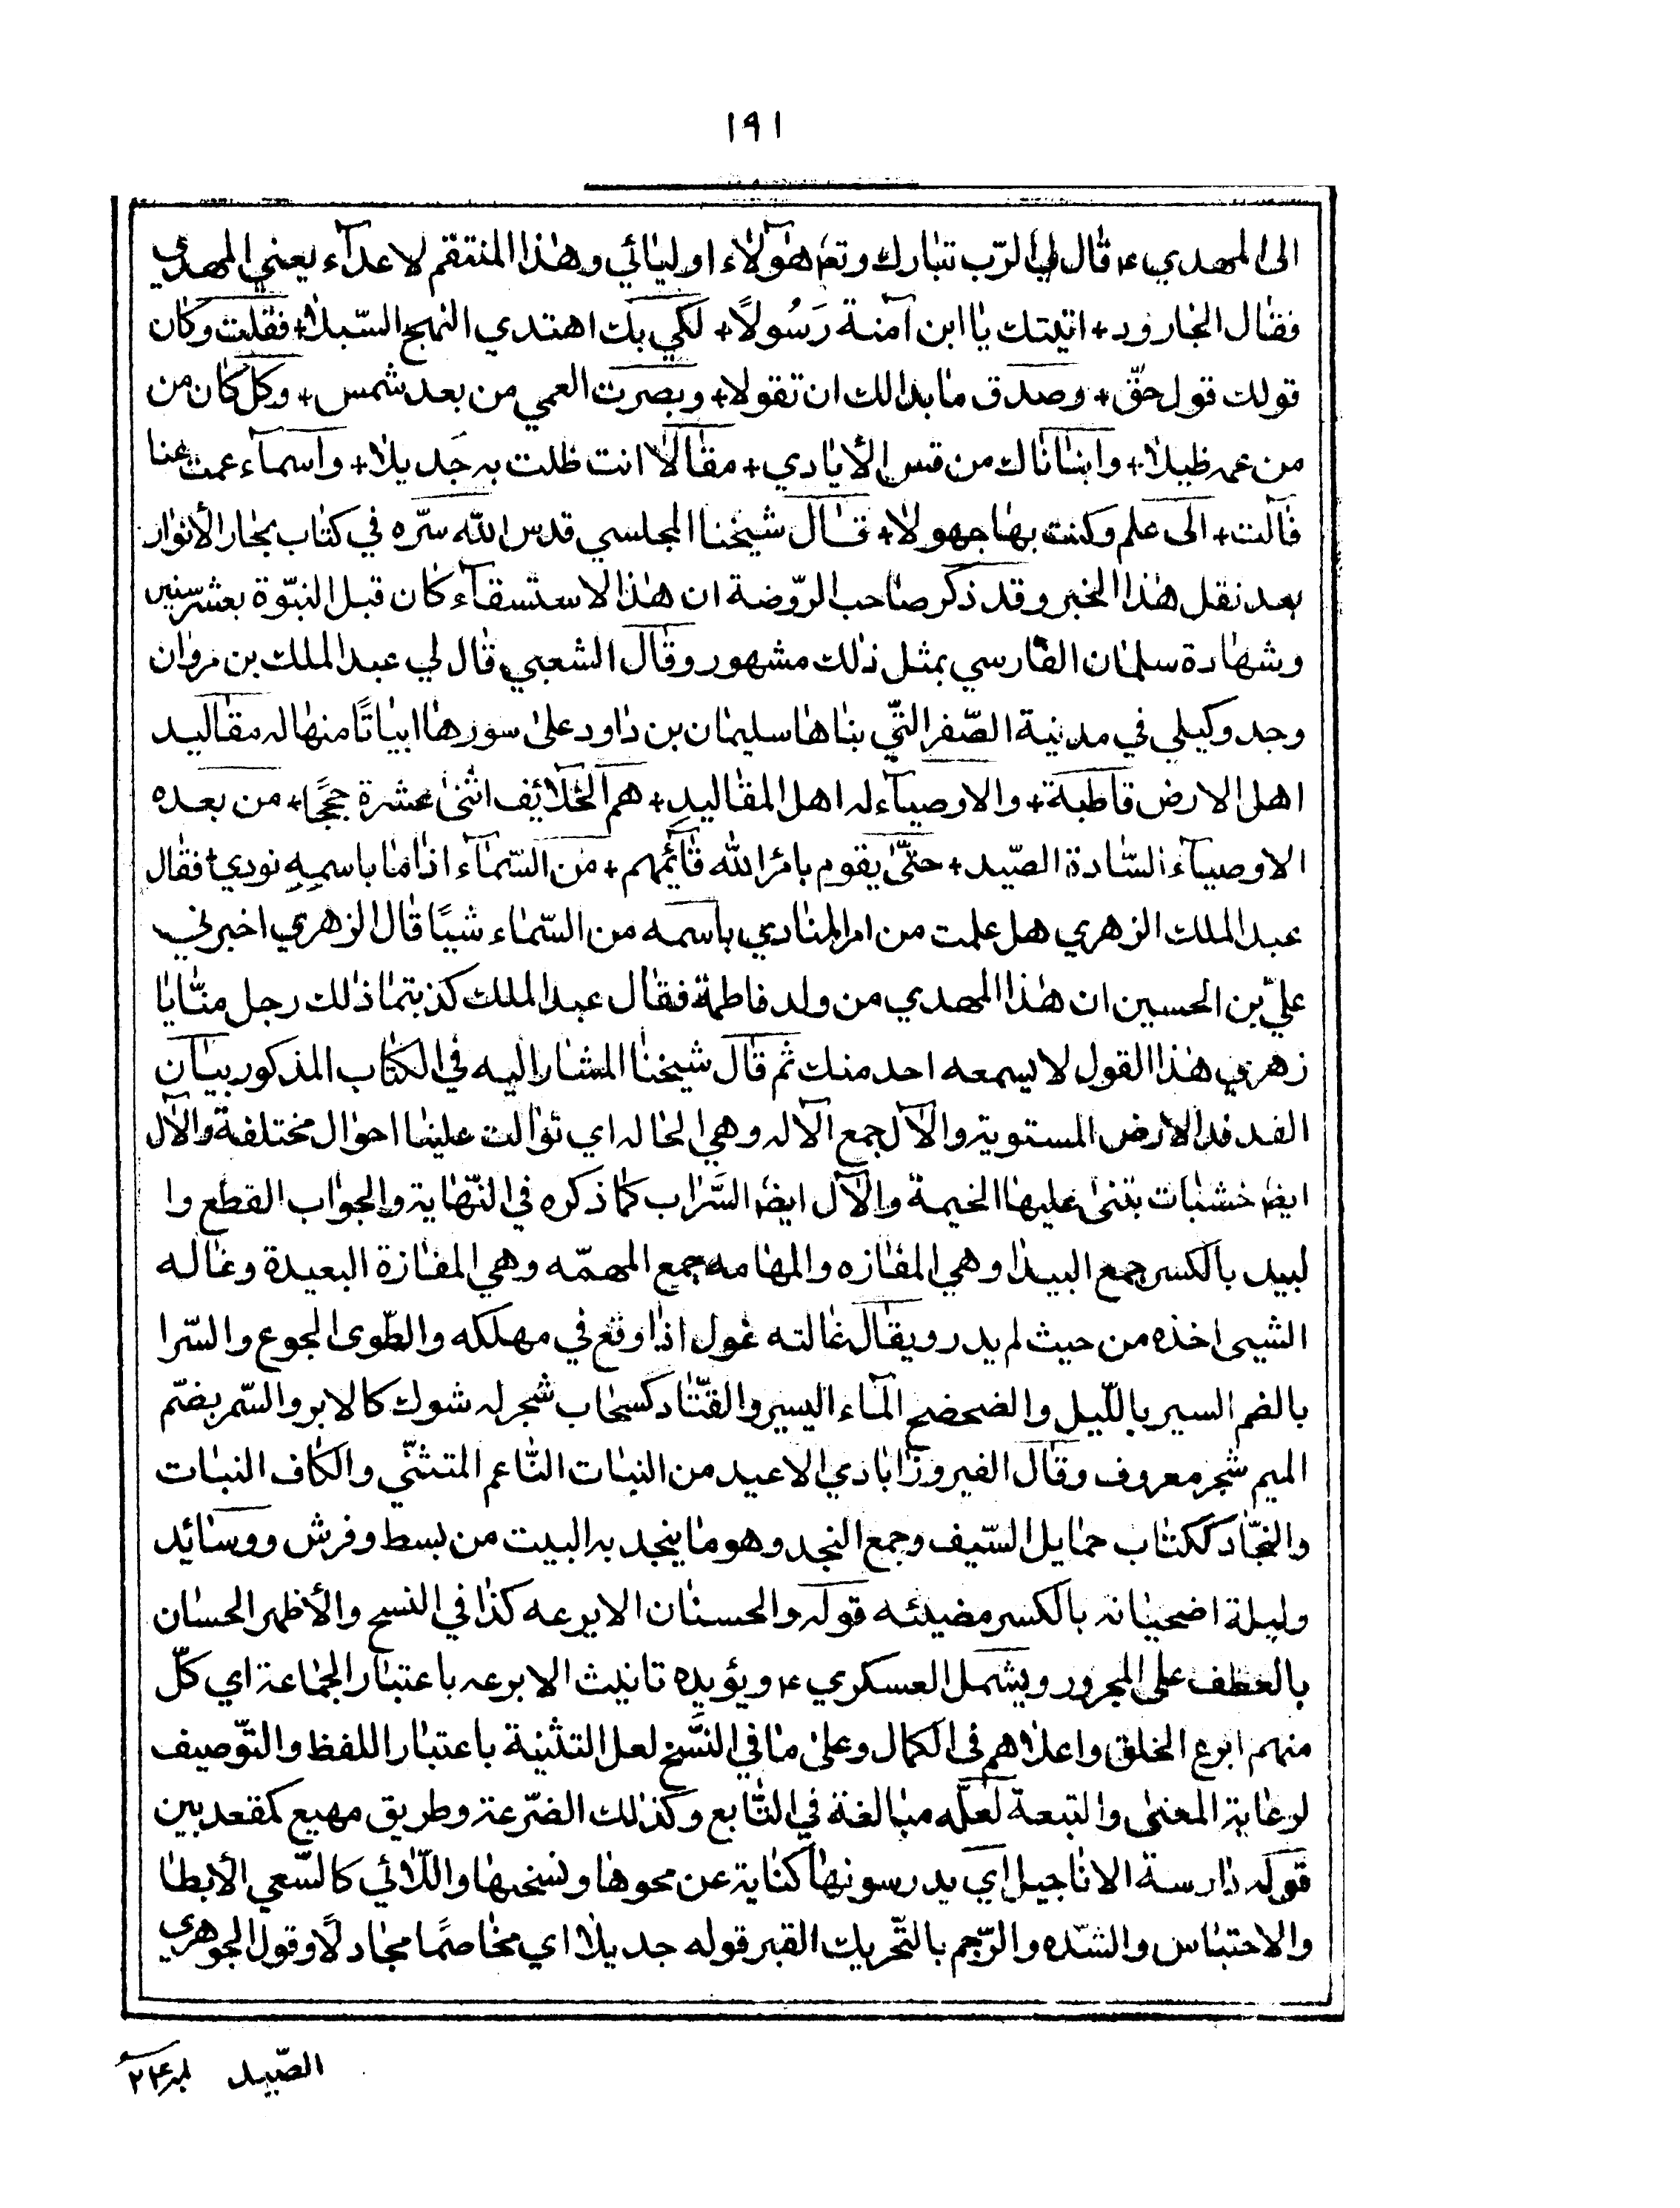 ١٩١
الى المهدي ع قال لي الرّب تبارك وتع هؤلاء اوليائي وهذا المنتقم لاعدآء يعني المهدي
فقال الجارود + اتيتك يا ابن آمنة رَسُولًا + لكي بك اهتدي النهج السّبيلا + فقلت وكان
قولك قول حقّ + وصدق ما بدالك ان تقولا + وبصرت العمي من بعد شمس + وكل كان من
من عمه ظليلا + وابنانا من قس الأيادي + مقالا انت ظلت به جَديلا + واسماء عمت عنا
فآلت + الى علم وكنت بها جهولا + قال شيخنا المجلسي قدس الله سّره في كتاب بحار الأنوار
بعد نقل هذا الخبر وقد ذكر صاحب الرّوضة ان هذا الاستسقآء كان قبل النبّوة بعشر سنين
وشهادة سلمان الفارسي بمثل ذلك مشهور وقال الشعبي قال لي عبد الملك بن مروان
وجد وكيلي في مدنية الصّفر التّي بناها سليمان بن داود على سورها ابياتًا منها له مقاليد
اهل الارض قاطبة + والاوصيآء له اهل المقاليد + هم الخلائف اثنى عشرة حججًا + من بعده
الاوصيآء السّادة الصّيد + حتّى يقوم بامر الله قآئمهم + من السّمآء اذا ما باسمِهِ نودي + فقال
عبد الملك الزهري هل علمت من امر المنادي باسمه من السّماء شيًا قال الزهري اخبرني
عليّ بن الحسين ان هذا المهدي من ولد فاطمة فقال عبد الملك كذبتما ذلك رجل منّا يا
زهري هذا القول لا يسمعه احد منك ثم قال شيخنا المشار اليه في الكتاب المذكور بيان
الفدفد الارض المستوية والآل جمع الآله وهي الحاله اي توالت علينا احوال مختلفة والآل
ايض خشبات بتنى عليها الخيمة والآل ايض السَّراب كما ذكره في النّهاية والجواب القطع وا
لبيد بالكسر جمع البيدا وهي المفازه والمهامه جمع المهمّه وهي المفازة البعيدة وغاله
الشيى اخذه من حيث لم يدر ويقال غالته غول اذا وقع في مهلكه والطّوى الجوع والسّرا
بالضم السير باللّيل والضحضح المآء اليسير والقتّاد كسحاب شجر له شوك كالابر والسّمر بضّم
الميم شجر معروف وقال الفيروزابادي الاعيد من النبات النّاعم المتثنّي والكاف النبات
والنجّاد ككتاب حمايل السّيف وجمع النجد وهو ما ينجد به البيت من بسط وفرش ووسائد
وليلة اضحيانه بالكسر مضيئه قوله والحسنان الابرعه كذا في النسح والأظهر الحسان
بالعطف على المجرور ويشمل العسكري ع ويؤيده تانيث الابرعه باعتبار الجماعة اي كلّ
منهم ابرع الخلق واعلاهم في الكمال وعلى ما في النسّخ لعل التثنية باعتبار اللفظ والتّوصيف
لرعاية المعنى والتبعة لعلّه مبالغة في التّابع وكذلك الضّرعة وطريق مهيع كمقعد بين
قوله دارسة الاناجيل اي يدرسونها كناية عن محوها ونسخها واللّائي كالسّعي الأبطا
والاحتباس والشدّه والرّجم بالتّحريك القبر قوله جديلا اي مخاصمًا مجادلًا وقول الجوهري
الصّيد نمر ٢٤